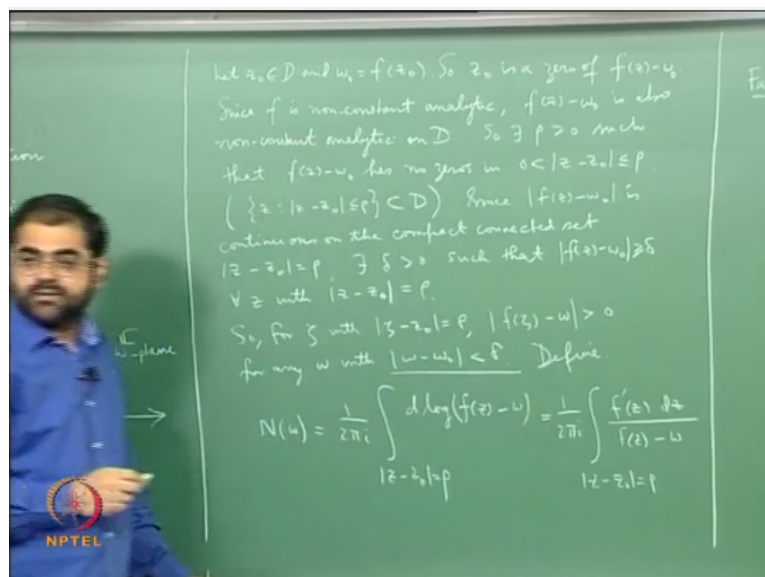 Let z₀ ∈ D and w₀ = f(z₀). So z₀ is a zero of f(z)-w₀.
Since f is non-constant analytic, f(z)-w₀ is also
non-constant analytic on D So ∃ ρ > 0 such
that f(z)-w₀ has no zeros in 0 < |z-z₀| ≤ ρ.
({z : |z-z₀| ≤ ρ} ⊂ D) Since |f(z)-w₀| is
continuous on the compact connected set
|z-z₀| = ρ, ∃ δ > 0 such that |f(z)-w₀| ≥ δ
∀ z with |z-z₀| = ρ.
So, for ζ with |ζ-z₀| = ρ, |f(ζ)-w| > 0
for any w with |w-w₀| < δ. Define
N(w) = 1/2πi ∫ d log(f(z)-w) = 1/2πi ∫ f'(z) dz / f(z)-w
|z-z₀|=ρ |z-z₀|=ρ
w-plane
NPTEL